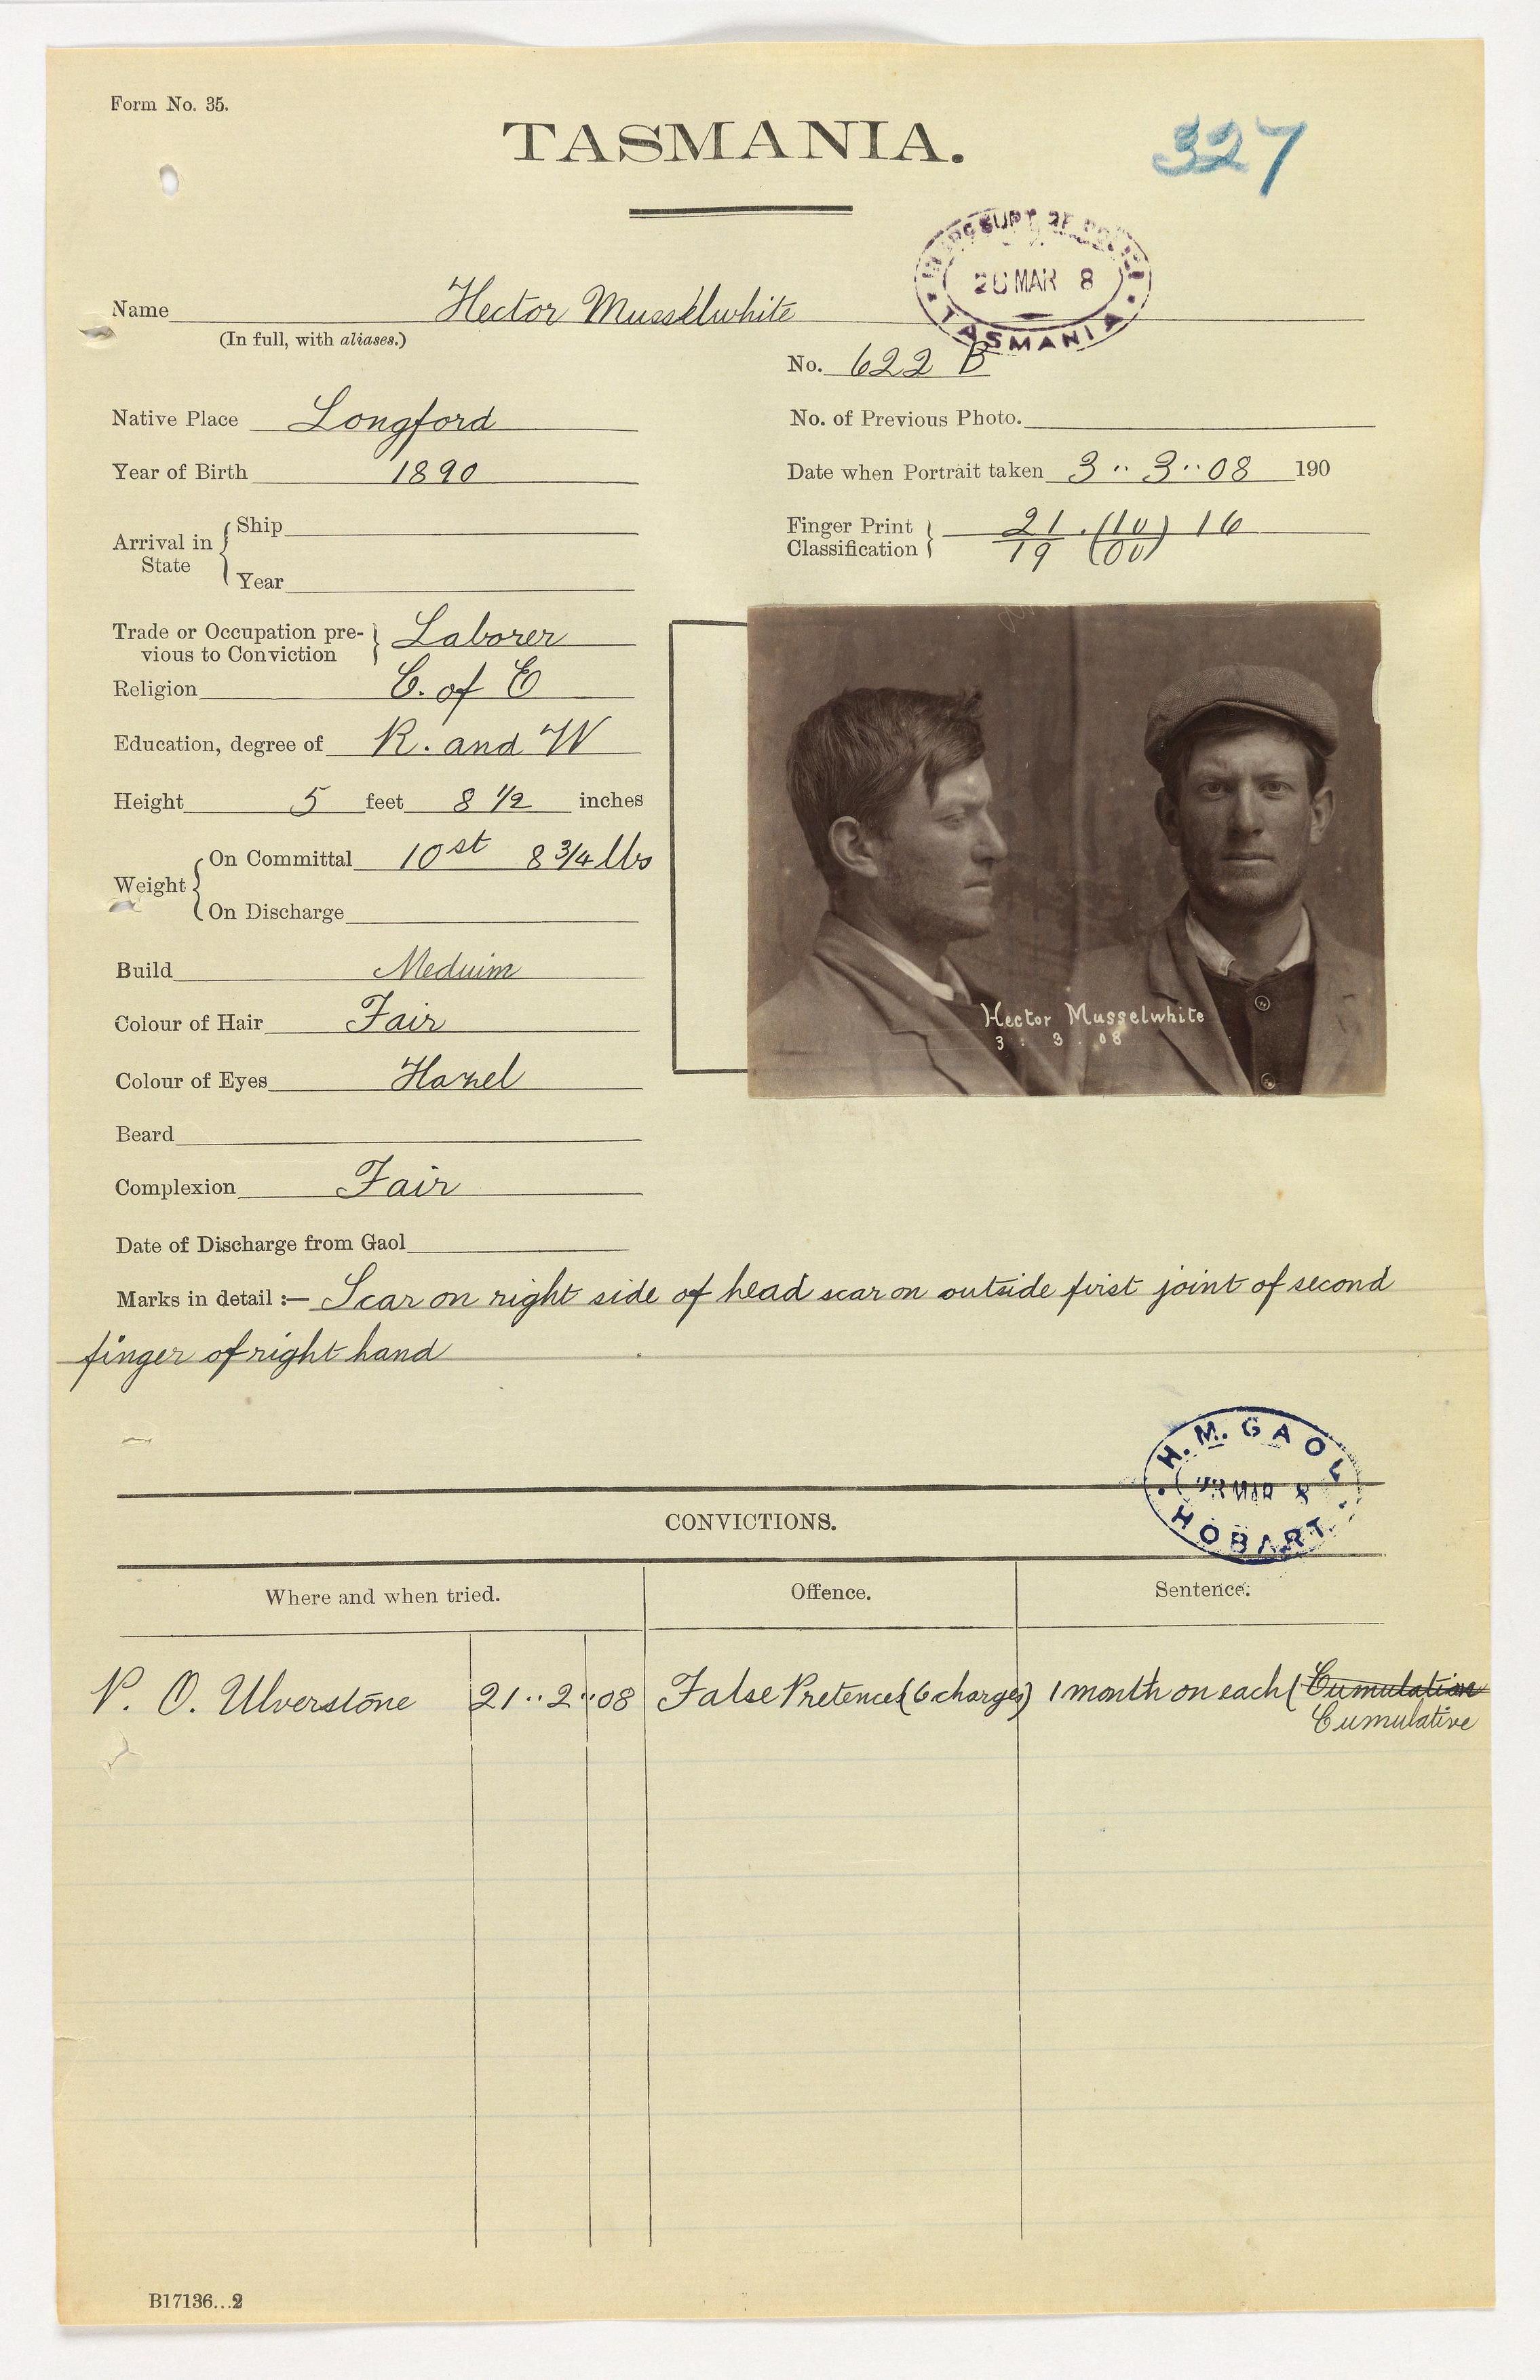 Form No. 35.
TASMANIA.
327
20 MAR 8
TASMANIA
Name Hector Musselwhite
(In full, with aliases.)
No. 622 B
Native Place Longford
No. of Previous Photo.
Year of Birth 1890
Date when Portrait taken 3..3..08 190
Arrival in State { Ship
Year
Finger Print Classification } 21/19 . (10)/(00) 16
Trade or Occupation pre-
vious to Conviction } Laborer
Religion C. of E
Education, degree of R. and W
Height 5 feet 8 1/2 inches
Weight { On Committal 10st 8 3/4 lbs
On Discharge
Build Meduim
Colour of Hair Fair
Hector Musselwhite
3 : 3 . 08
Colour of Eyes Hazel
Beard
Complexion Fair
Date of Discharge from Gaol
Marks in detail :— Scar on right side of head scar on outside first joint of second
finger of right hand
H. M. GAOL
MAR 8
HOBART.
CONVICTIONS.
Where and when tried. Offence. Sentence.
P. O. Ulverstone 21..2..08 False Pretences (6 charges) 1 month on each ( Cumulation
Cumulative
B17136...2